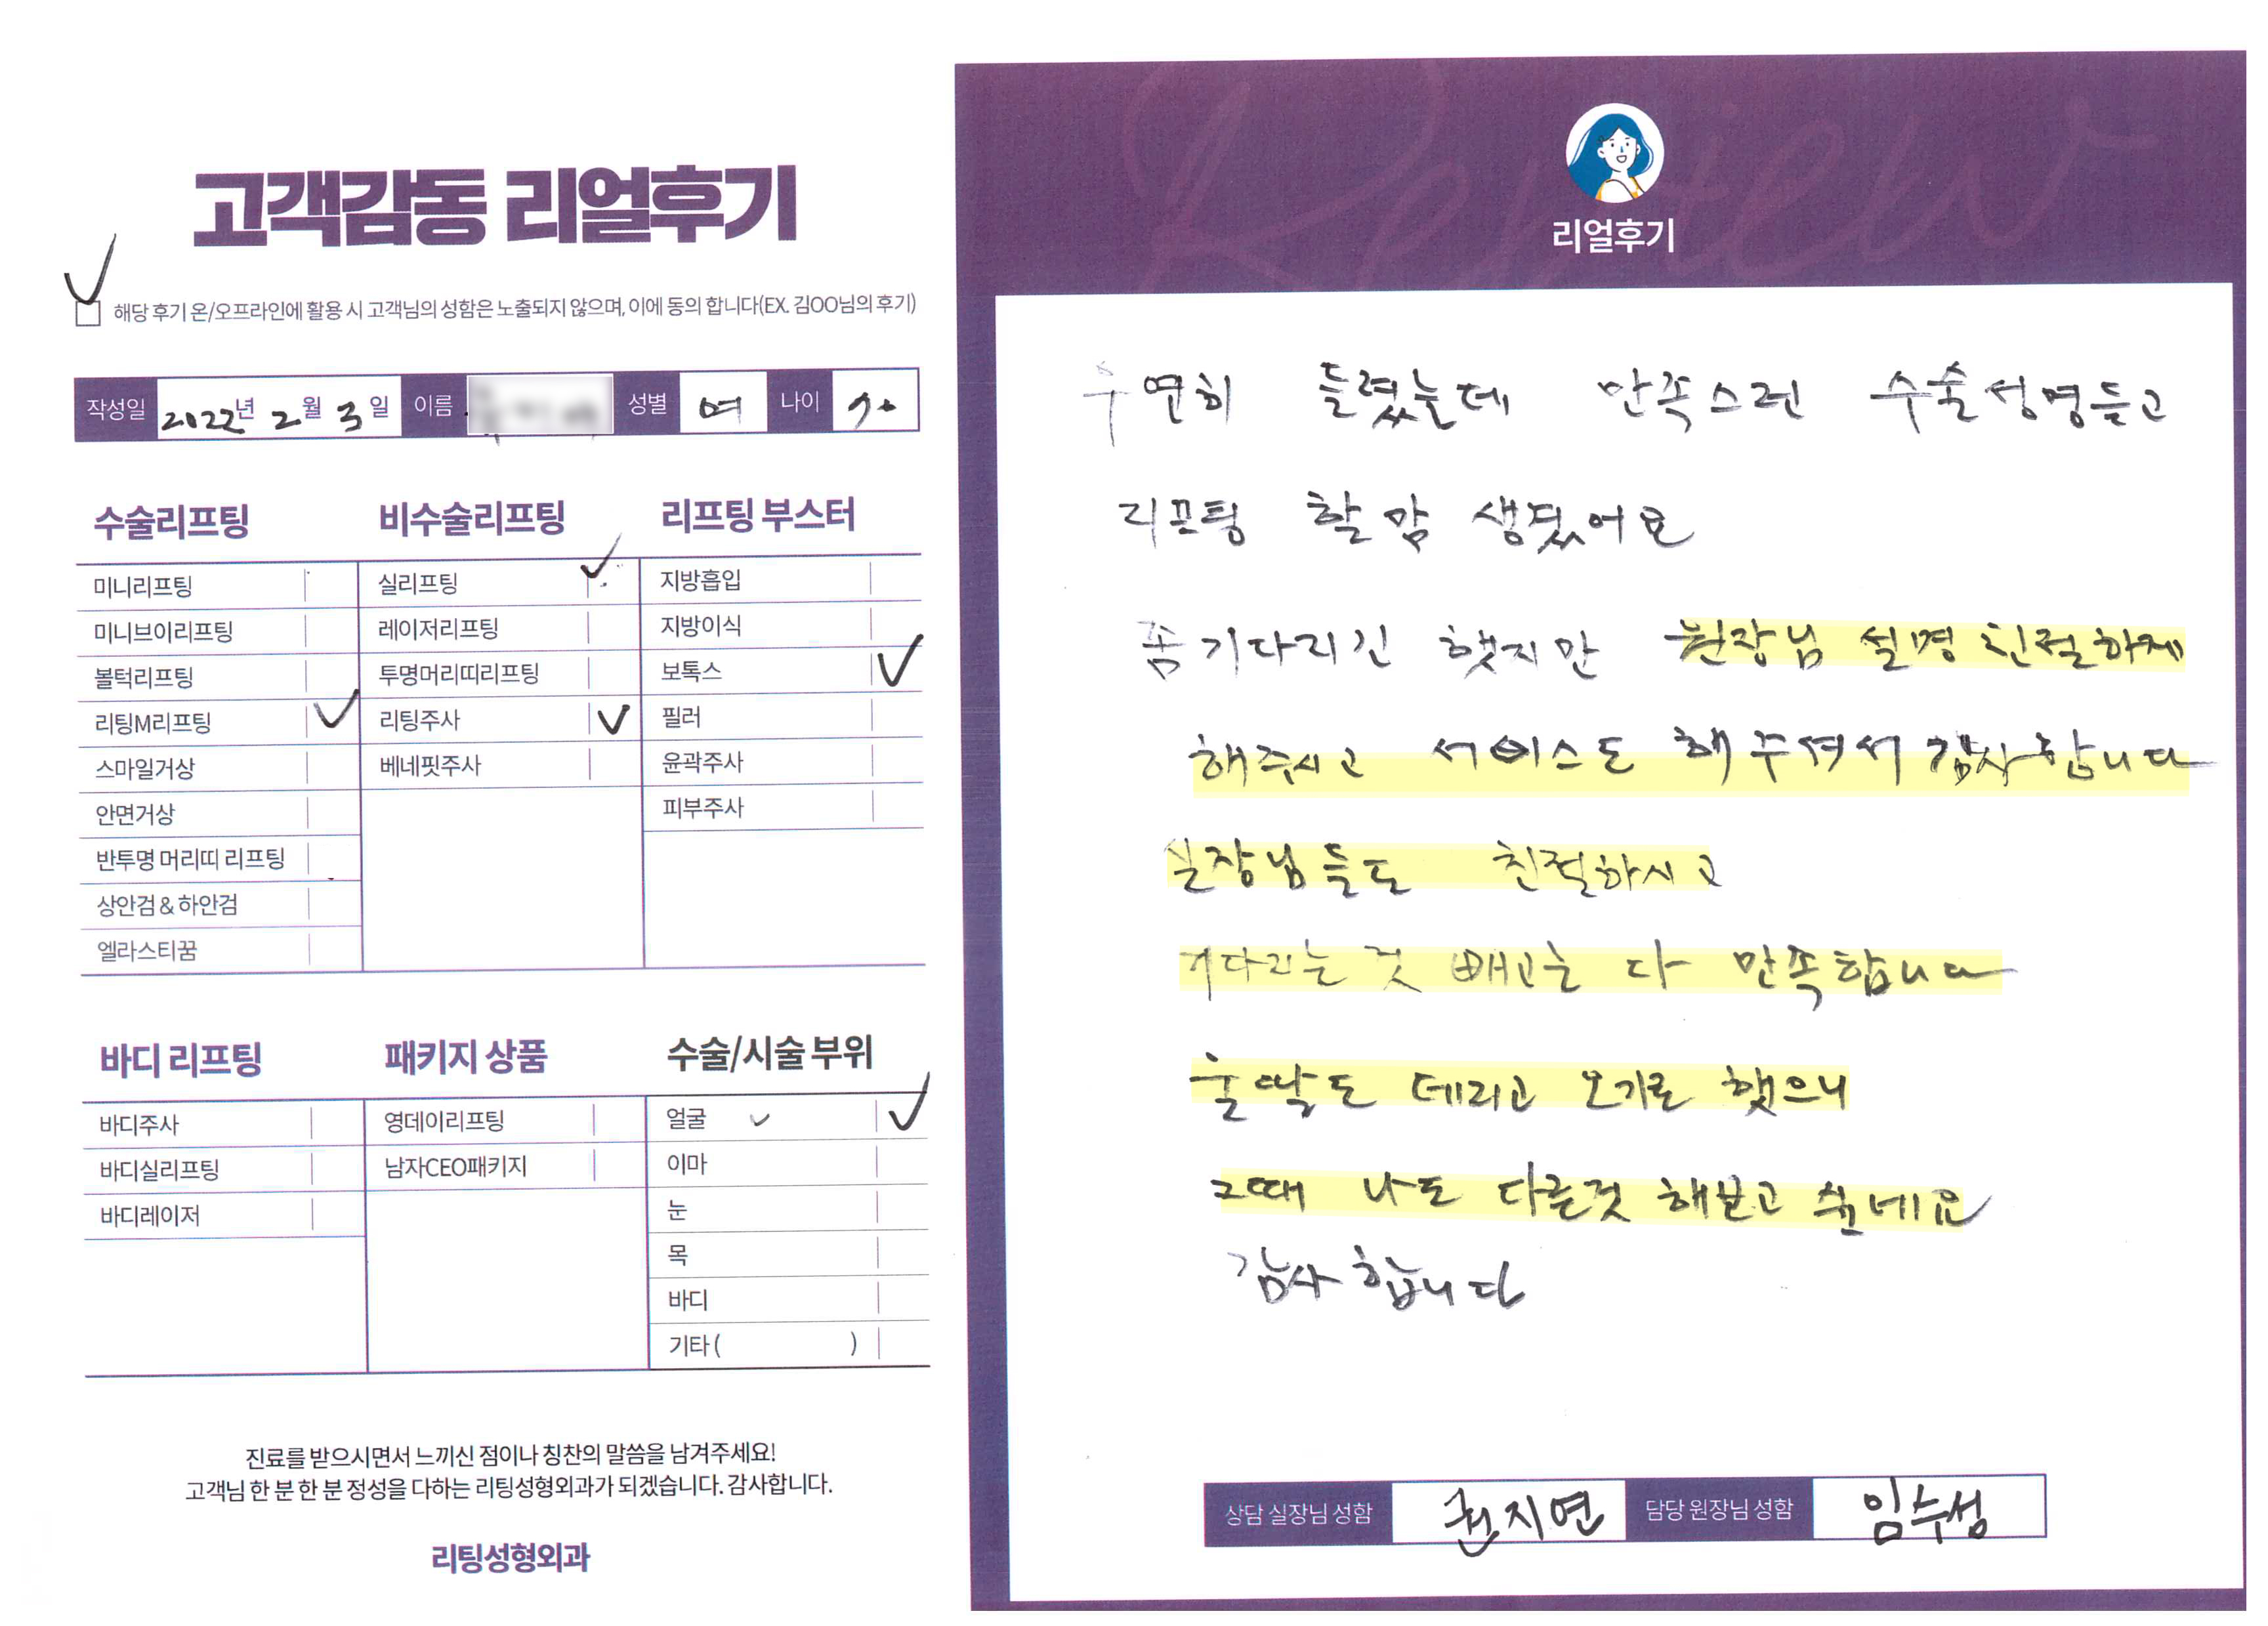 고객감동 리얼후기
해당 후기 온/오프라인에 활용 시 고객님의 성함은 노출되지 않으며, 이에 동의 합니다(EX. 김OO님의 후기)
작성일 2022년 2월 3일 이름 성별 여 나이
수술리프팅
미니리프팅
미니브이리프팅
볼턱리프팅
리팅M리프팅
스마일거상
안면거상
반투명 머리띠 리프팅
상안검 & 하안검
엘라스티꿈
비수술리프팅
실리프팅
레이저리프팅
투명머리띠리프팅
리팅주사
베네핏주사
리프팅 부스터
지방흡입
지방이식
보톡스
필러
윤곽주사
피부주사
바디 리프팅
바디주사
바디실리프팅
바디레이저
패키지 상품
영데이리프팅
남자CEO패키지
수술/시술 부위
얼굴
이마
눈
목
바디
기타 ( )
진료를 받으시면서 느끼신 점이나 칭찬의 말씀을 남겨주세요!
고객님 한 분 한 분 정성을 다하는 리팅성형외과가 되겠습니다. 감사합니다.
리팅성형외과
Review
리얼후기
우연히 들렸는데 만족스런 수술성명듣고
리프팅 할 맘 생겼어요
좀 기다리긴 했지만 원장님 설명 친절하게
해주시고 서비스도 해주셔서 감사합니다
실장님들도 친절하시고
기다리는 것 빼고는 다 만족합니다
울딸도 데리고 오기로 했으니
그때 나도 다른것 해보고 싶네요
감사합니다
상담 실장님 성함 권지연 담당 원장님 성함 임수성